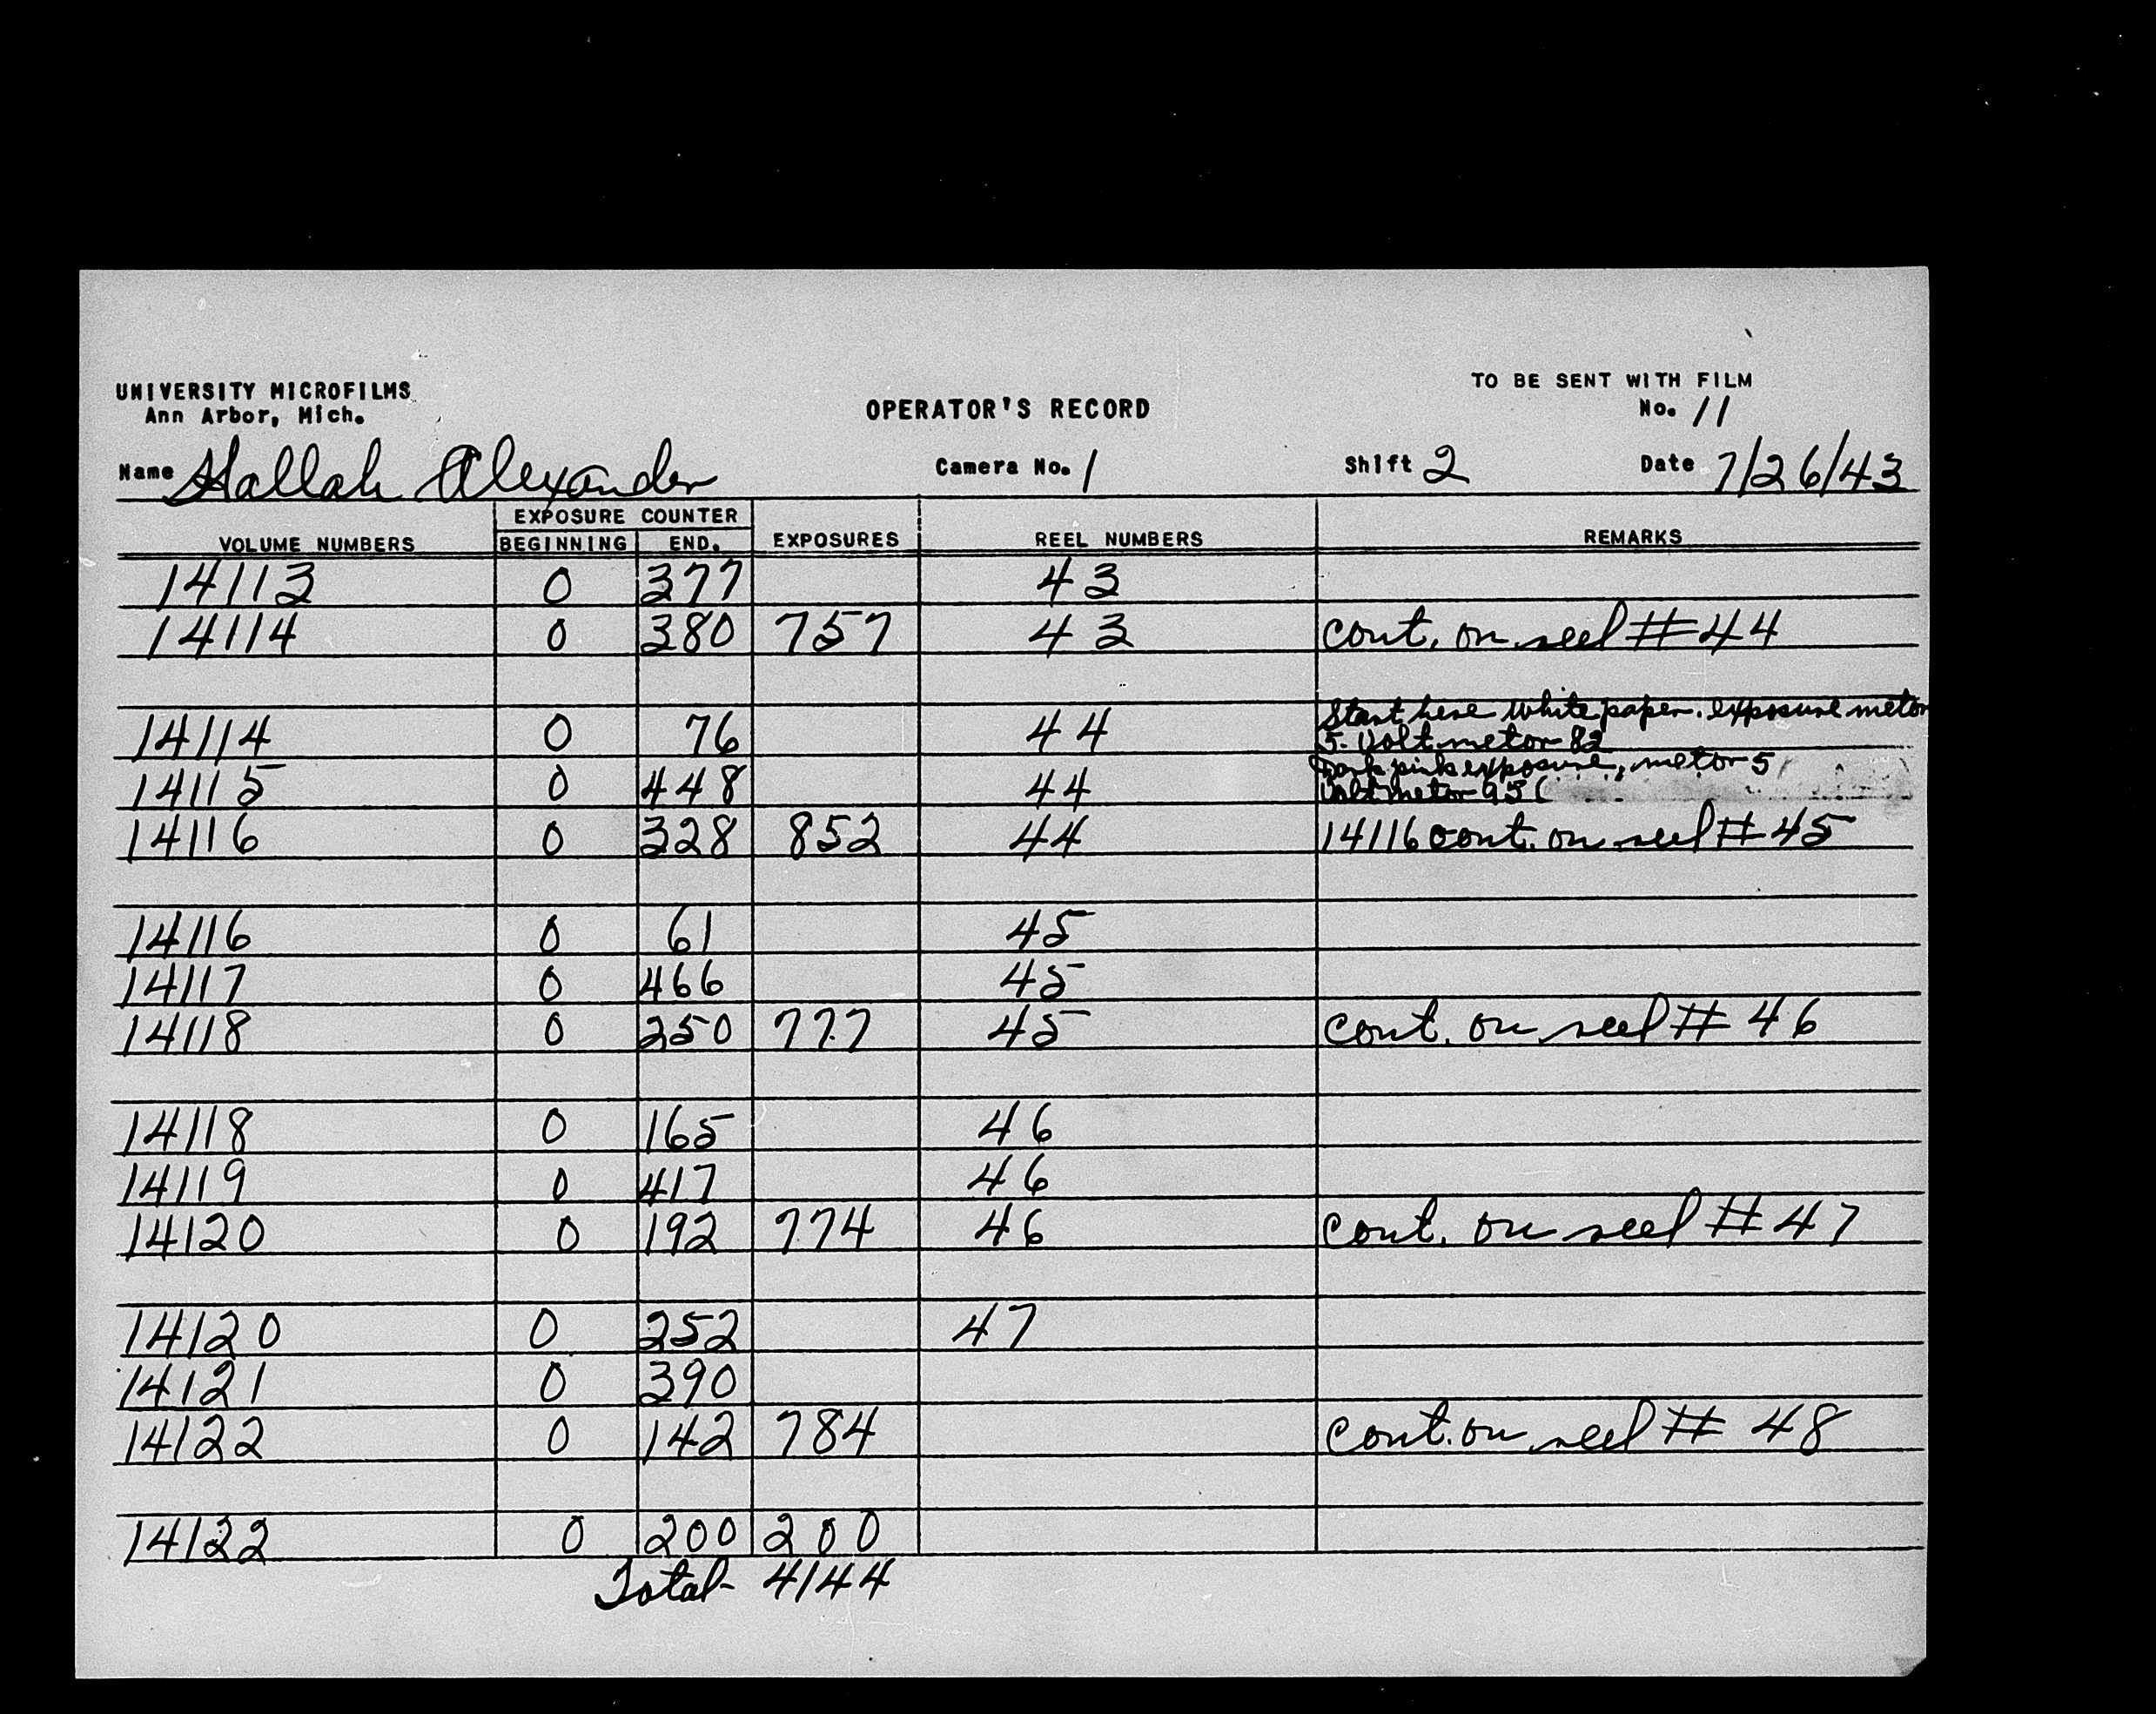 UNIVERSITY MICROFILMS
Ann Arbor, Mich.
OPERATOR'S RECORD
TO BE SENT WITH FILM
No. 11
Name Hallah Alexander Camera No. 1 Shift 2 Date 7/26/43
EXPOSURE COUNTER
VOLUME NUMBERS BEGINNING END. EXPOSURES REEL NUMBERS REMARKS
14113 0 377 43
14114 0 380 757 43 cont. on reel #44
14114 0 76 44 Start here white paper. exposure metor
5. Volt metor 82
14115 0 448 44 Dark pink exposure, metor 5
Volt metor 95
14116 0 328 852 44 14116 cont. on reel #45
14116 0 61 45
14117 0 466 45
14118 0 250 777 45 cont. on reel # 46
14118 0 165 46
14119 0 417 46
14120 0 192 774 46 cont. on reel #47
14120 0 252 47
14121 0 390
14122 0 142 784 cont. on reel # 48
14122 0 200 200
Total- 4144